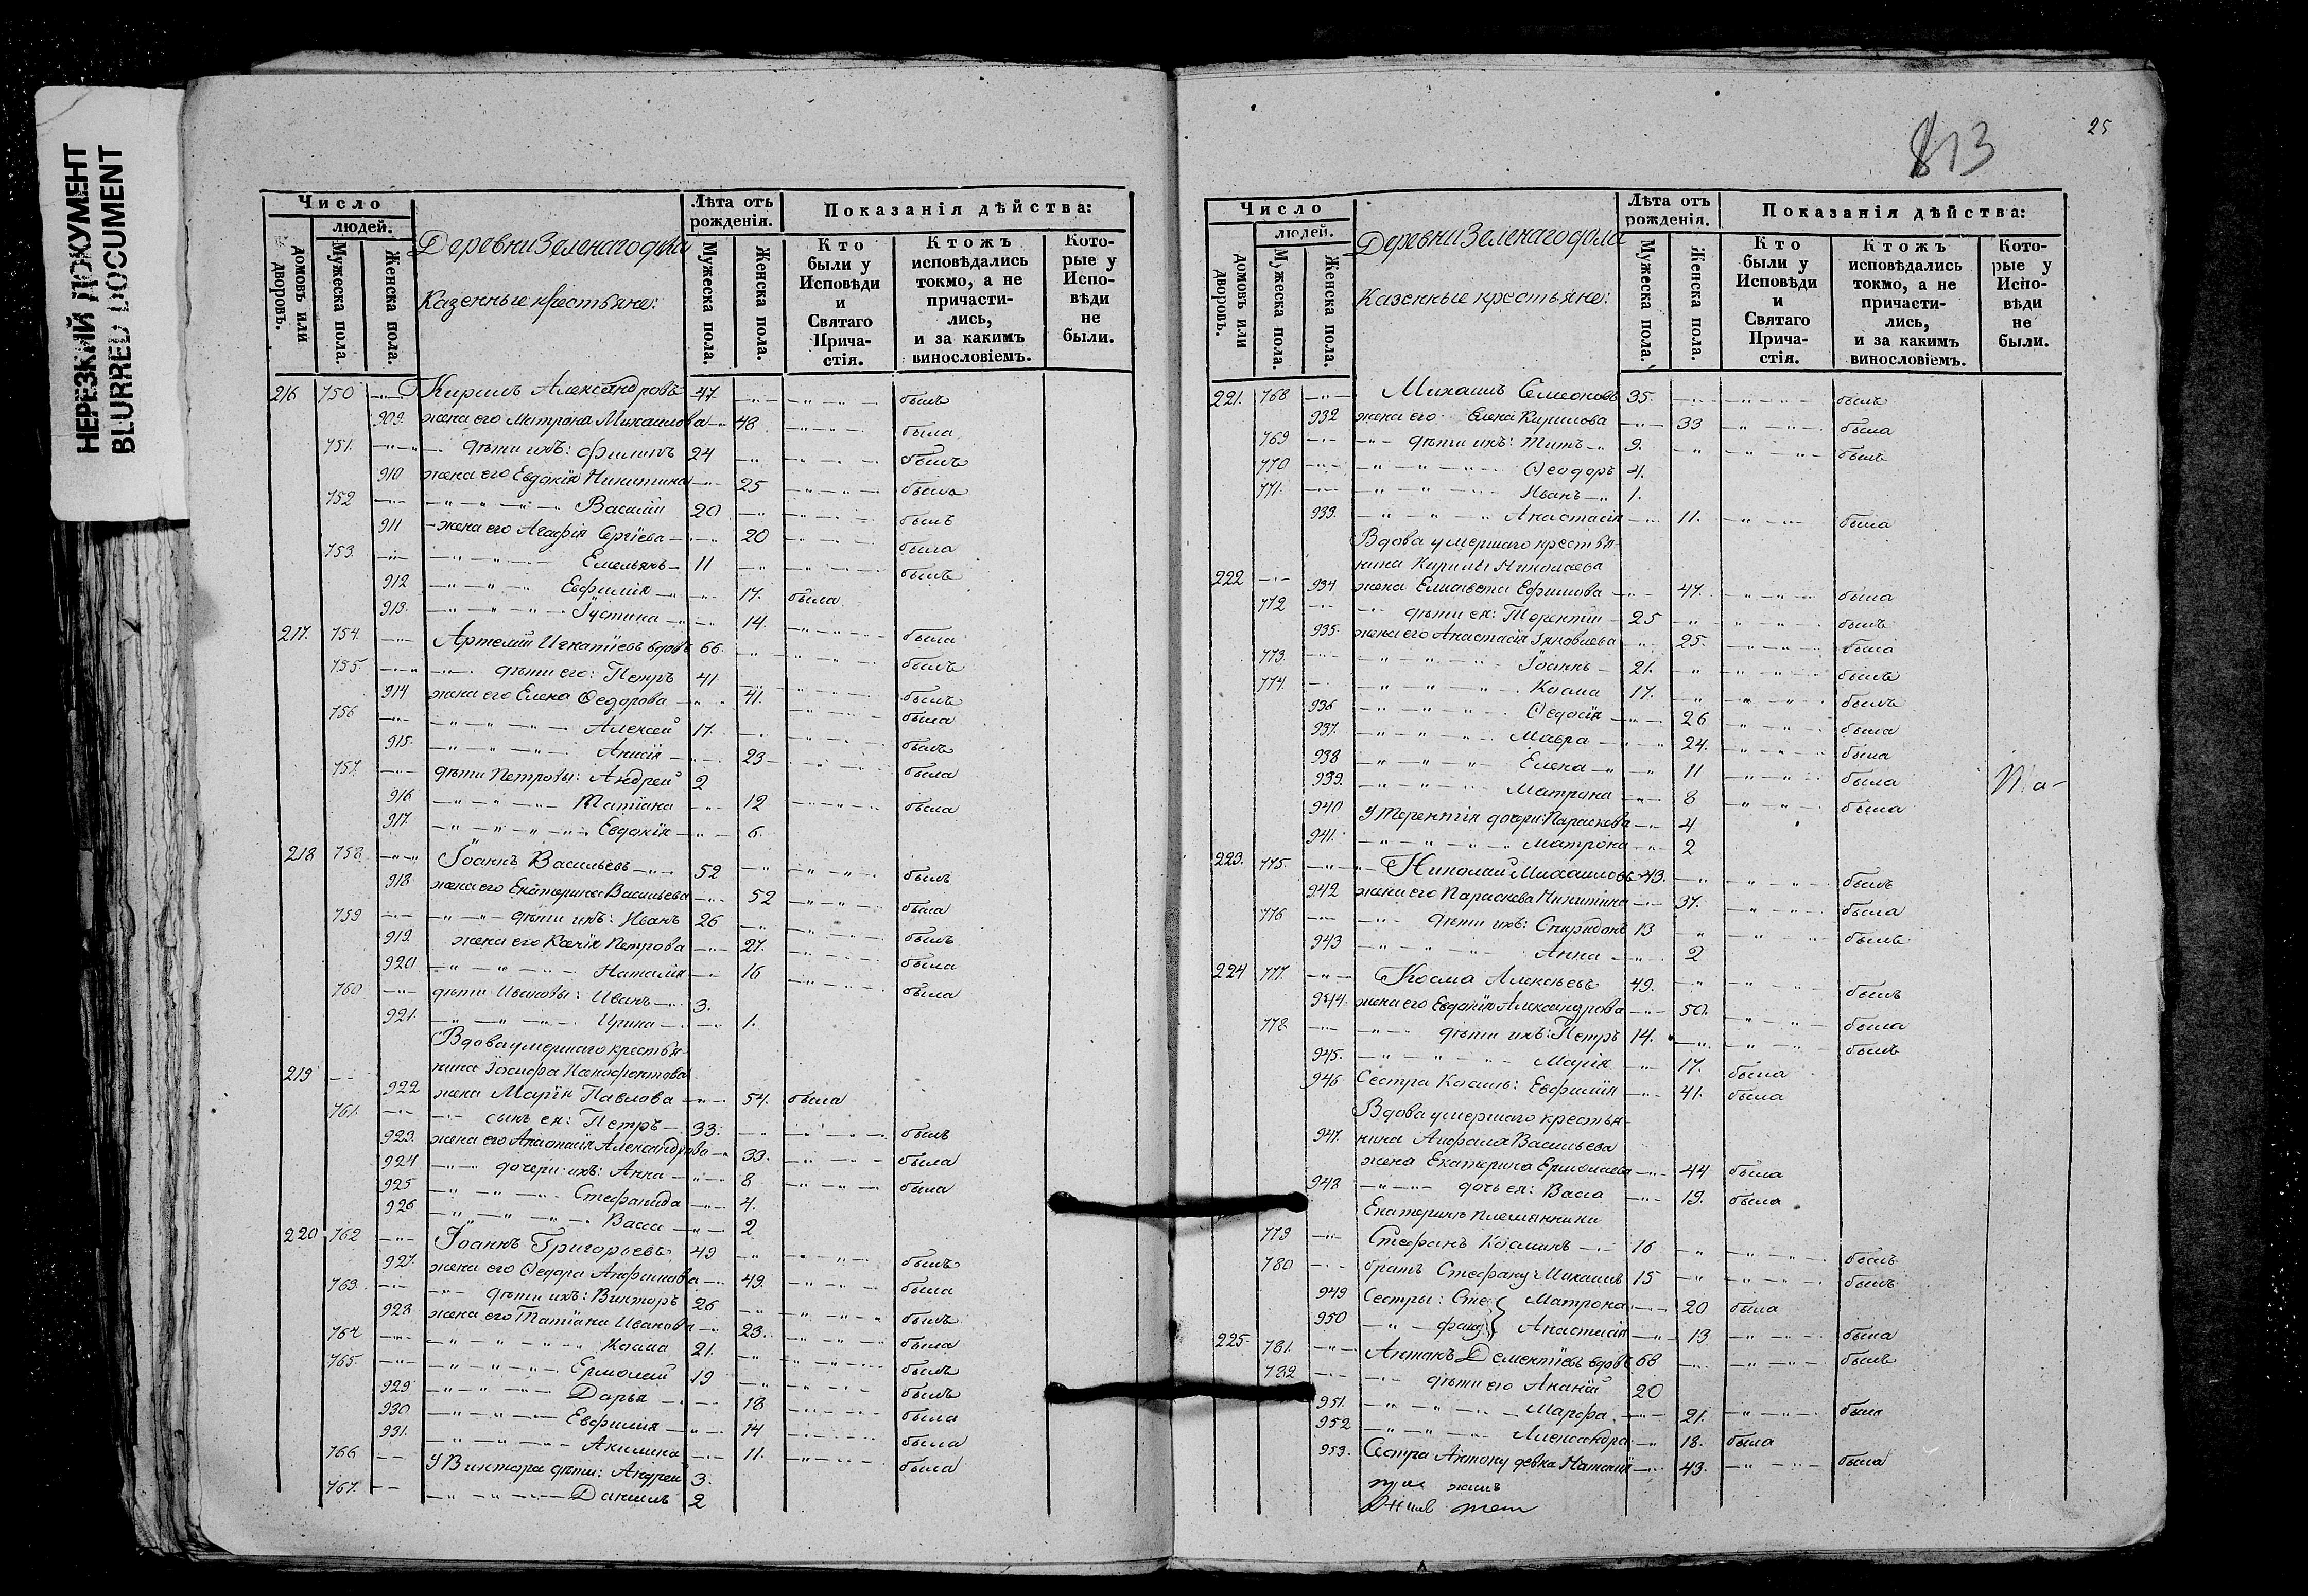 НЕРЕЗКИЙ ДОКУМЕНТ
BLURRED DOCUMENT
Число
людей.
домовъ или дворовъ.
Мужеска пола.
Женска пола.
Деревни Зеленагодола
Казенные крестьяне:
Лѣта отъ рожденія.
Мужеска пола.
Женска пола.
Показанія дѣйства:
Кто были у Исповѣди и Святаго Прича-стія.
Ктожъ исповѣдались токмо, а не причасти-лись, и за какимъ винословіемъ.
Кото-рые у Испо-вѣди не были.
216 750 Кирилъ Александровъ 47 былъ
909. жена его Матрона Михаилова 48 была
751. дѣти ихъ: Филипъ 24 былъ
910 жена его Евдокія Никитина 25 была
752 Василій 20 былъ
911 жена его Агафія Сергіева 20 была
753. Емельянъ 11 былъ
912 Евфимія 17. была
913. Іустина 14. была
217. 754. Артемій Игнатіевъ вдовъ 66. былъ
755. дѣти его: Петръ 41 былъ
914 жена его Елена Ѳедорова 41. была
756 Алексей 17. былъ
915. Анисія 23 была
757. дѣти Петровы: Андрей 2
916 Татіана 12 была
917. Евдокія 6.
218 758. Іоаннъ Васильевъ 52 былъ
918 жена его Екатерина Васильева 52 была
759 дѣти ихъ: Иванъ 26 былъ
919. жена его Ксенія Петрова 27. была
920 Наталія 16 была
760 дѣти Ивановы: Иванъ 3.
921. Ирина 1.
Вдова умершаго крестья-
219 нина Іосифа Ксенофонтова
922 жена Марія Павлова 54. была
761. сынъ ея: Петръ 33. былъ
923. жена его Анастасія Александрова 33. была
924 дочери ихъ: Анна 8 была
925 Стефанида 4.
926 Васса 2
220 762 Іоаннъ Григорьевъ 49 былъ
927. жена его Ѳедора 49. была
763. дѣти ихъ: Викторъ 26 былъ
928 жена его Татіана Иванова 23. была
764 Косма 21. былъ
765. Ермолай 19 былъ
929 Дарья 18 была
930 Евфимія 14 была
931. Акилина 11. была
766 У Виктора дѣти: Андрей 3.
767. Даніилъ 2
813
25
Число
людей.
домовъ или дворовъ.
Мужеска пола.
Женска пола.
Деревни Зеленагодола
Казенные крестьяне:
Лѣта отъ рожденія.
Мужеска пола.
Женска пола.
Показанія дѣйства:
Кто были у Исповѣди и Святаго Прича-стія.
Ктожъ исповѣдались токмо, а не причасти-лись, и за какимъ винословіемъ.
Кото-рые у Испо-вѣди не были.
221. 768 Михаилъ Семеоновъ 35. былъ
932 жена его Елена Кирилова 33 была
769 дѣти ихъ: Титъ 9. былъ
770 Ѳеодоръ 4.
771. Иванъ 1.
933. Анастасія 11. была
Вдова умершаго крестья-
нина Кирилы Николаева
222 934 жена Елисавета Ефимова 47. была
772 дѣти ея: Терентій 25 былъ
935. жена его Анастасія Яковлева 25. была
773. Іоаннъ 21. былъ
774. Косма 17. былъ
936 Ѳедосія 26 была
937. Мавра 24. была
938 Елена 11 была
939. Матрона 8 была
940 У Терентія дочери: Параскева 4
941. Матрона 2
223. 775. Николай Михаиловъ 43. былъ
942 жена его Параскева Никитина 37. была
776 дѣти ихъ: Спиридонъ 13 былъ
943 Анна 2
224 777. Косма Алексѣевъ 49. былъ
944. жена его Евдокія Александрова 50. была
778 дѣти ихъ: Петръ 14. былъ
945. Марія 17. была
946 Сестра Космы: Евфимія 41. была
Вдова умершаго крестья-
947. нина Васильева
жена Екатерина Ермолаева 44 была
948 дочь ея: Васса 19. была
Екатеринѣ племянники
779 Стефанъ Косминъ 16 былъ
780 братъ Стефану Михаилъ 15 былъ
949 Сестры: Сте- Матрона 20 была
950 фану Анастасія 13 была
225. 781. Антонъ Дементіевъ вдовъ 68 былъ
782 дѣти его Ананій 20
951. Марфа 21. была
952 Александра 18. была
953. Сестра Антону девка Наталія 43. была